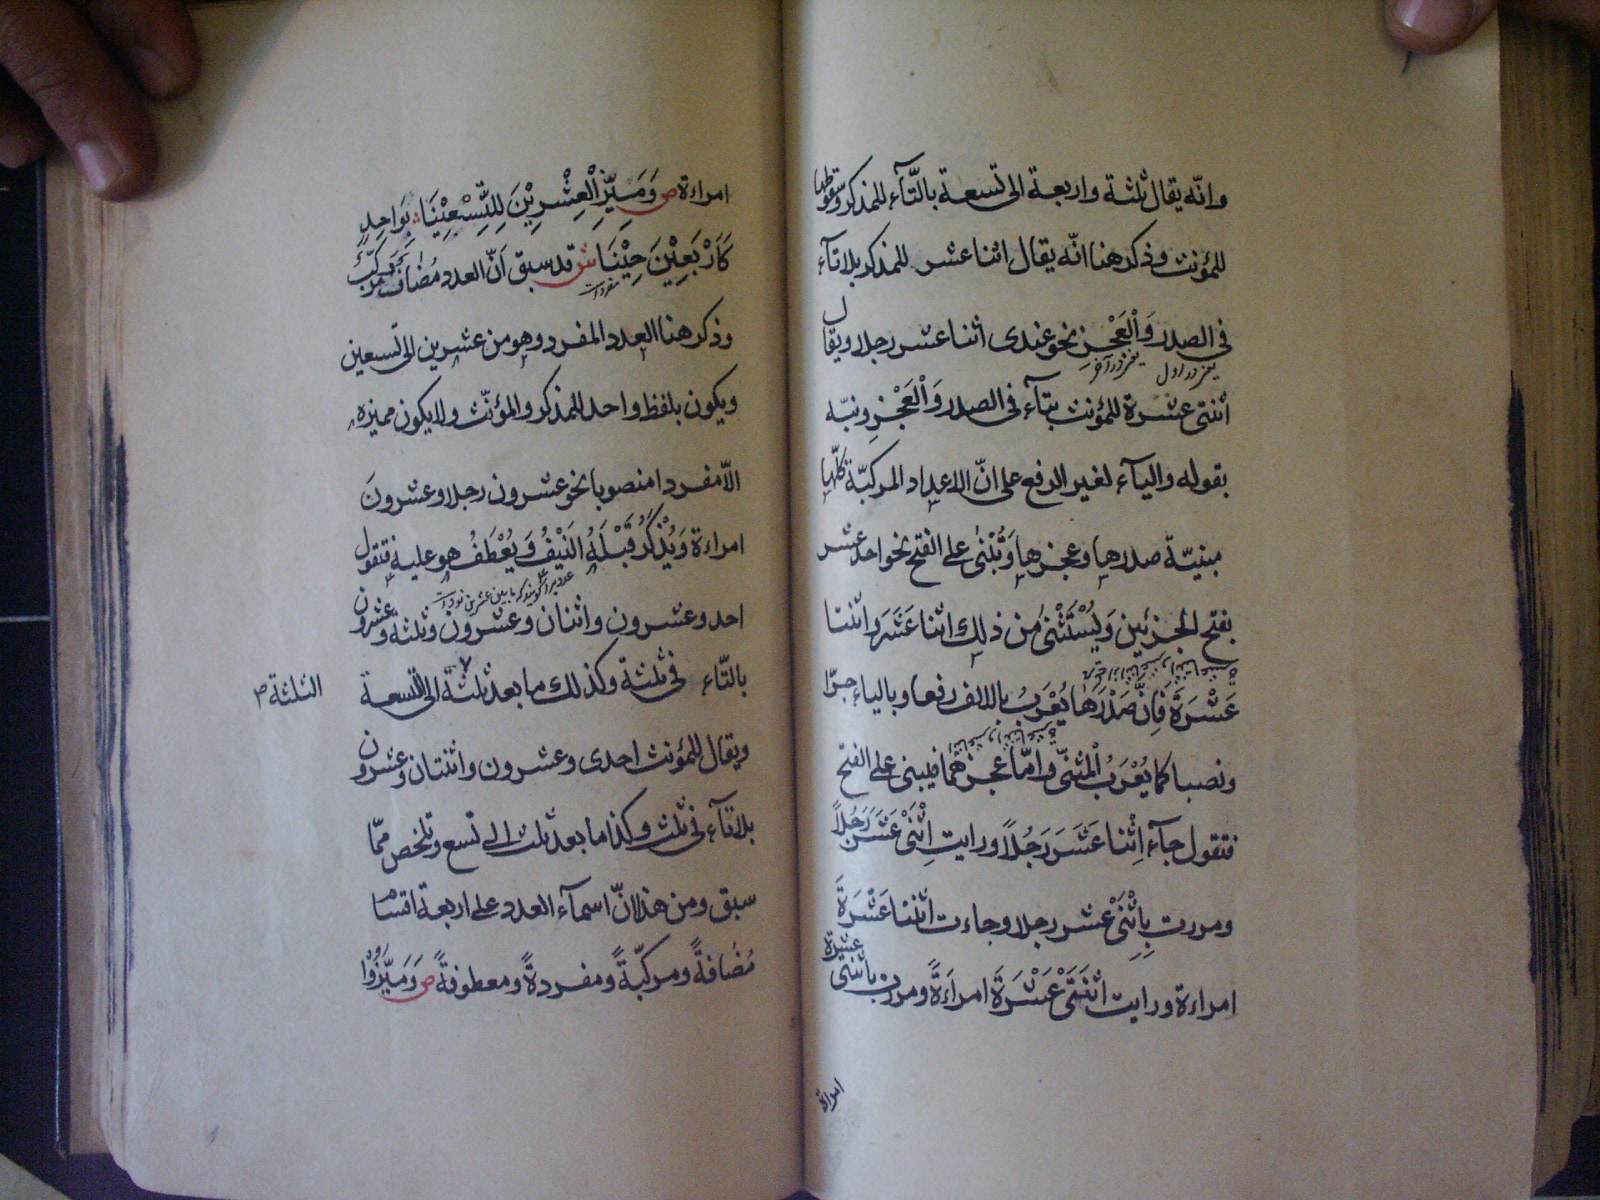 وانّه يقال ثلثة واربعة الى تسعة بالتّآء للمذكر وسقوطها
للمؤنث وذكر هنا انّه يقال اثنا عشر للمذكر بلا تآء
فى الصدر وَالْعَجْزِ نحو عندى اثنا عشر رجلا ويقال
يعنى در اول يعنى در آخر
اثنتى عشرة للمؤنث بتآء فى الصدر وَالْعَجْزِ ونبّه
بقوله واليآء لغير الرفع على انّ الاعداد المركبّة كلّها
مبنيّة صدرها وعجزها وَتُبْنٰى على الفتح نحو احد عشر
بفتح الجزئين وَيُسْتَثْنٰى من ذلك اثنا عَشَرَ واثنتا
عَشْرَةَ فَاِنَّ صَدْرَهَا يُعْرَبُ بالالف رفعا وبالياء جرّا
ونصبا كما يُعْرَبُ الْمثنّى وامّا عجزهما فيبنى على الفتح
فتقول جآء اِثْنا عَشَرَ رَجُلاً ورايت اِثْنَىْ عَشَرَ رَجُلاً
ومررت بِاِثْنَىْ عشر رجلا وجاءت اثنتا عَشْرَةَ
امراءة ورايت اثْنَتَىْ عَشْرَةَ امراَةً ومررت باثنتى عشرة
امراة
امراءة ص وَمَيِّزِ الْعِشْرِيْنَ لِلتِّسْعِيْنَا بِوَاحِدٍ
كَاَرْبَعِيْنَ حِيْنَا ش قد سبق اَنّ العدد مُضاف ومركّب
وذكر هنا العدد المفرد وهو من عشرين الى تسعين
ويكون بلفظ واحد للمذكر والمؤنّث ولا يكون مميزه
الّا مفردا منصوبا نحو عشرون رجلا وعشرونَ
امراءة وَيُذْكَرُ قَبْلَهُ النَيْفُ وَيُعْطَفُ هو عليه فتقول
احد وعشرون واثنان وعشرون وثلثة وعشرون
بالتّاء فى ثلثة وكذلك ما بعد ثلثة الى التسعة
الثلثة ص
ويقال للمؤنث احدى وعشرون واثنتان وعشرون
بلا تآء فى ثلث وكذا ما بعد ثلث الى تسع وتلخص ممّا
سبق ومن هذا انّ اسمآء العدد على اربعة اقسام
مُضافةً ومركبّةً ومفردةً ومعطوفةً ص وَمَيَّزُوْا